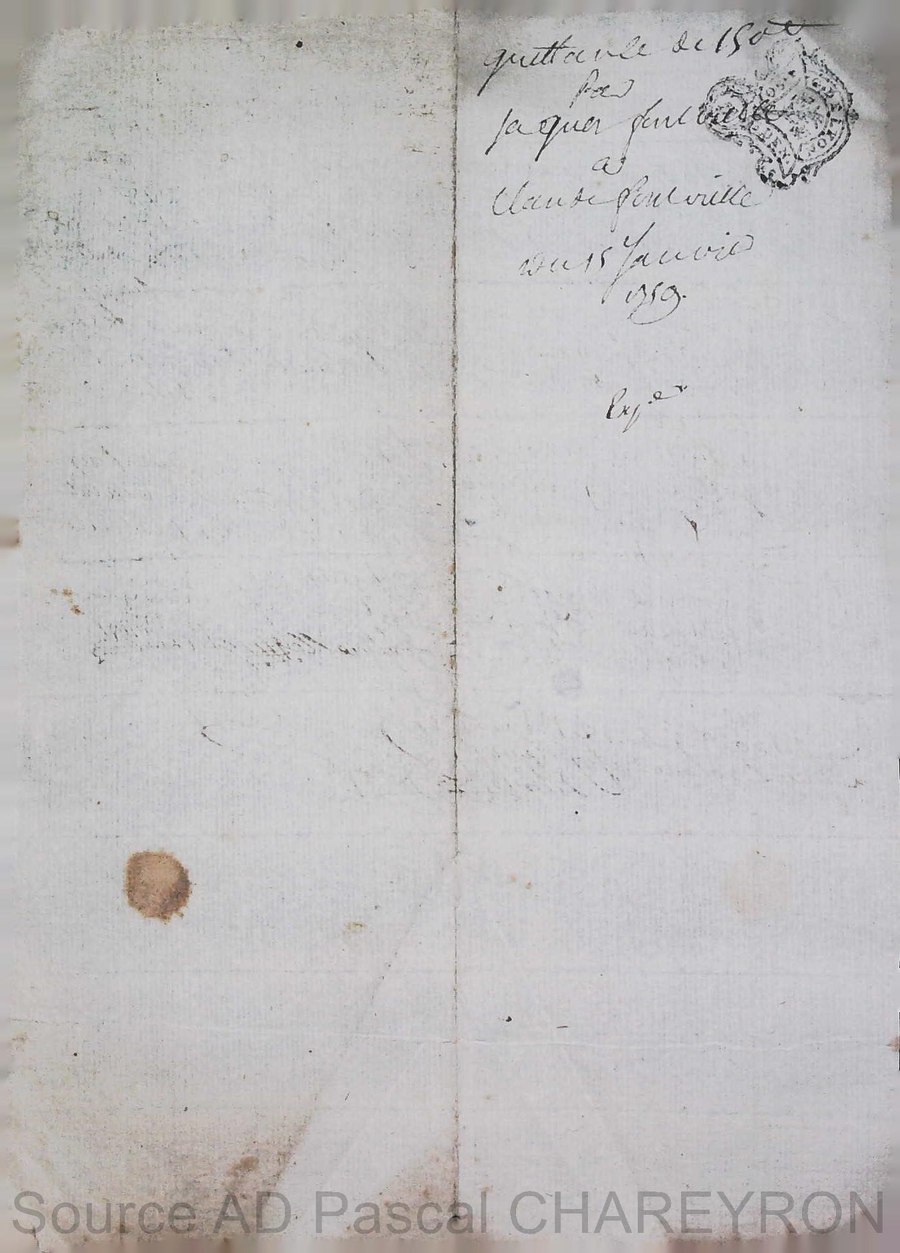 quittance de 150#
par
Jaques fontvieille
a
Claude fontvieille
du 15 Janvier
1759.
Exp.er
Source AD Pascal CHAREYRON